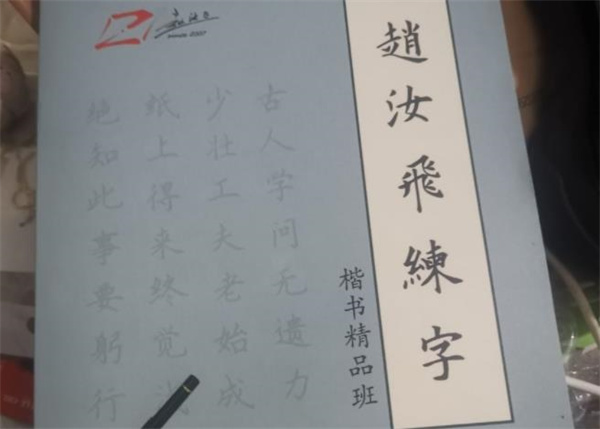 趙汝飛練字
楷书精品班
古人学问无遗力
少壮工夫老始成
纸上得来终觉浅
绝知此事要躬行